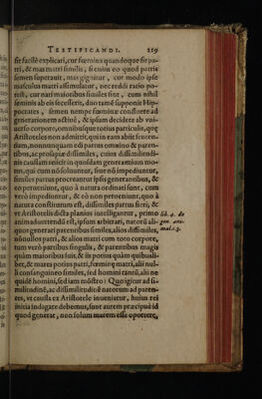 TESTIFICANDI. 219
sit facilè explicari, cur fœmina quandoque sit pa-
tri, & mas matri similis, si enim eo quod portio
semen superauit, mas gignitur, cur modo ipse
masculus matri assimulatur, nec reddi ratio po-
test, cur nati maioribus similes sint, cum nihil
seminis ab eis fecesserit, duo tamē supponit Hip-
pocrates, semen nempe fœminæ conferre ad
generationem actiuè, & ipsum decidere ab vni-
uerso corpore, omnibusque totius particulis, quæ
Aristoteles non admittit,
dum, nonnunquam edi partus omnino & paren-
tibus, ac prosapiæ dissimiles, cuius dissimilitudi-
nis causam inijcit in quosdam generationis mo-
tus, qui cum nō soluuntur, siue nō impediuntur,
similes partus procreantur ipsis generantibus, &
eo perueniunt, quo à natura ordinati sunt, cum
verò impediuntur, & eò non perueniunt, quo à
natura constitutum est, dissimiles partus fieri, &
vt Aristotelis dicta planius intelligantur, primo
lib. 4. de
animaduertendū est, ipsum arbitrari, naturā ali-
gen. ani-
quos generari parentibus similes, alios dissimiles,
mal. c. 3.
nōnullos patri, & alios matri cum toto corpore,
tum verò partibus singulis, & parentibus magis
quàm maioribus suis, & iis potius quàm quibusli-
bet, & mares potius patri, fœminæ matri, alii nul-
li consanguineo similes, sed homini tantū, alii ne
quidē homini, sed iam mōstro: Quoigitur ad si-
militudinē, ac dissimilitudinē natorum ad paren-
tes, vt causa ex Aristotele inueniatur, huius rei
initia indagare debemus, sunt autem præcipuè id
quod generat, non solum marem esse oportere,